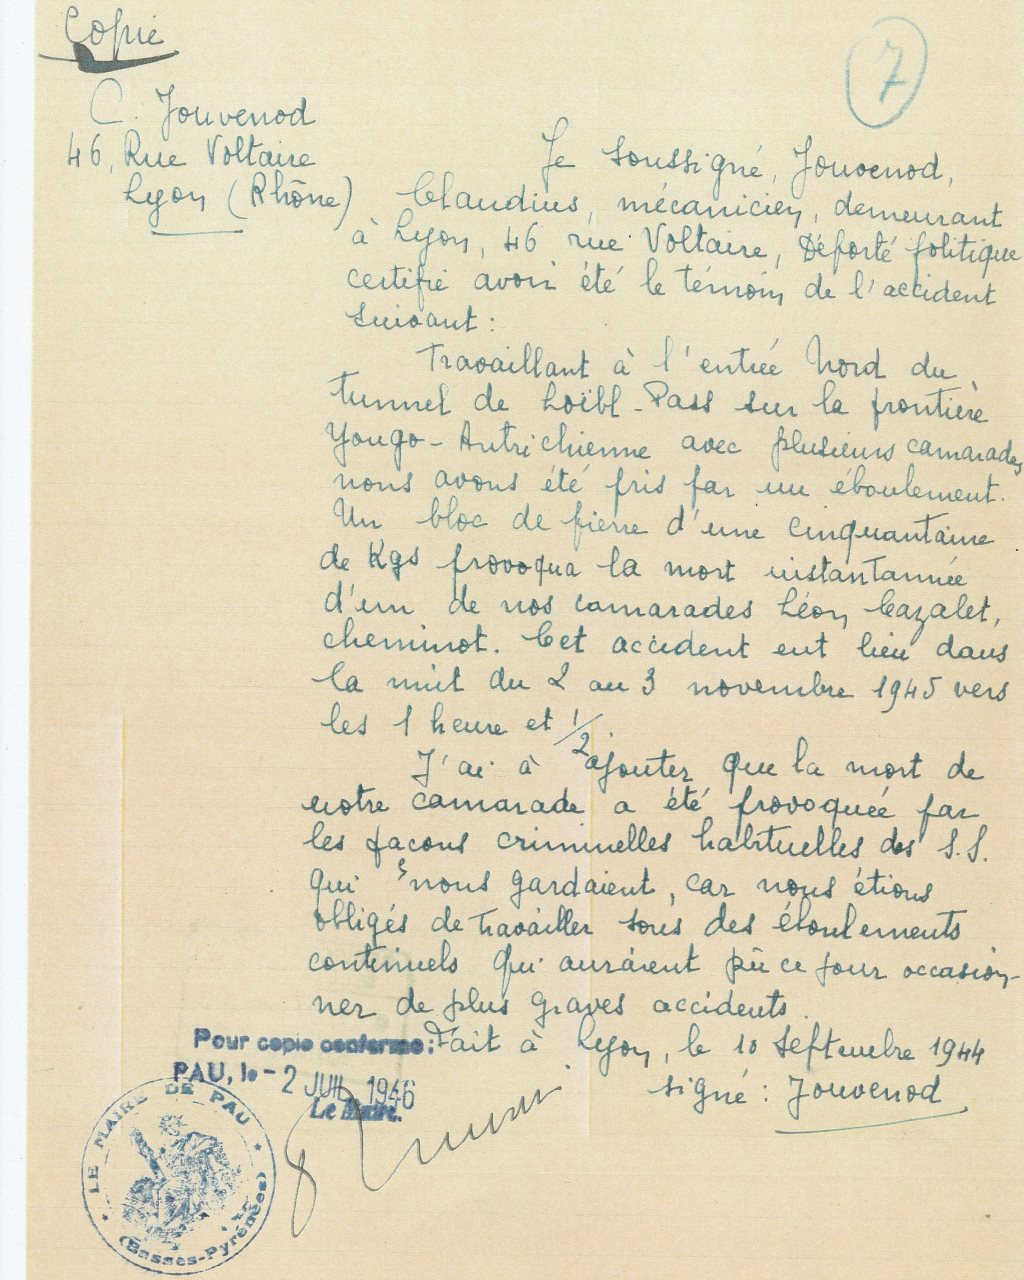 Copie
7
C. Jouvenod
46, Rue Voltaire
Lyon (Rhône)
Je soussigné, Jouvenod,
Claudius, mécanicien, demeurant
à Lyon, 46 rue Voltaire, Déporté politique
certifie avoir été le témoin de l'accident
suivant :
Travaillant à l'entrée Nord du
tunnel de Loïbl-Pass sur la frontière
Yougo-Autrichienne avec plusieurs camarades
nous avons été pris par un éboulement.
Un bloc de pierre d'une cinquantaine
de Kgs provoqua la mort instantannée
d'un de nos camarades Léon Cazalet,
cheminot. Cet accident eut lieu dans
la nuit du 2 au 3 novembre 1945 vers
les 1 heure et 1/2
J'ai à ajouter que la mort de
notre camarade a été provoquée par
les façons criminelles habituelles des S.S.
qui nous gardaient, car nous étions
obligés de travailler sous des éboulements
continuels qui auraient pû ce jour occasion-
ner de plus graves accidents.
Fait à Lyon, le 10 Septembre 1944
signé : Jouvenod
Pour copie conforme :
PAU, le - 2 JUIL 1946
Le Maire.
LE MAIRE DE PAU
(Basses-Pyrénées)